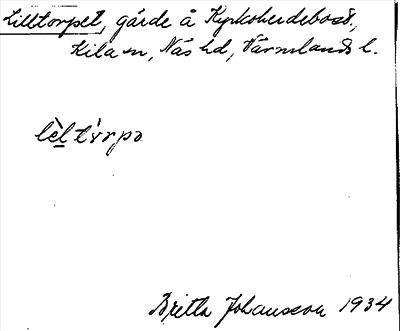 Lilltorpet, gärde å Kyrkoherdebost.,
Kila sn, Näs hd, Värmlands l.
lèltɤ́rpə
Britta Johansson 1934